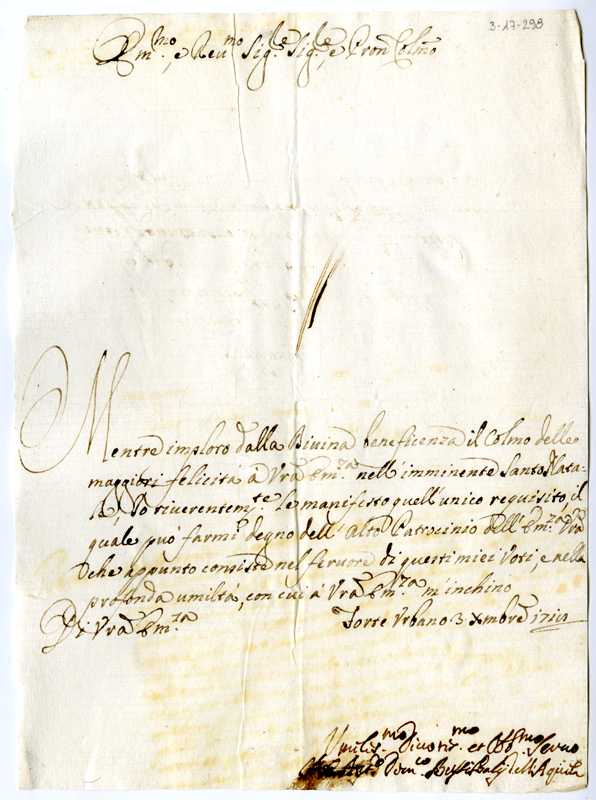 3-17-298
Em.mo, e Reu.mo Sig.re Sig.re, e Pron Colmo
Mentre imploro dalla Diuina beneficenza il Colmo delle
maggiori felicità à Vrã Em.za nell'imminente Santo Nata-
le, Io riverentem.te le manifesto quell'unico requisito, il
quale può farmi degno dell'alto Patrocinio dell'Em.za Vrã
che appunto consiste nel feruore di questi miei Voti, e nella
profonda umiltà, con cui à Vrã Em.za m'inchino
Di Vrã Em.za Forte Vrbano 3 Xmbre
Vmilis.mo Diuotis.mo et Obl.mo Seruo
Dom.co dell'Aquila